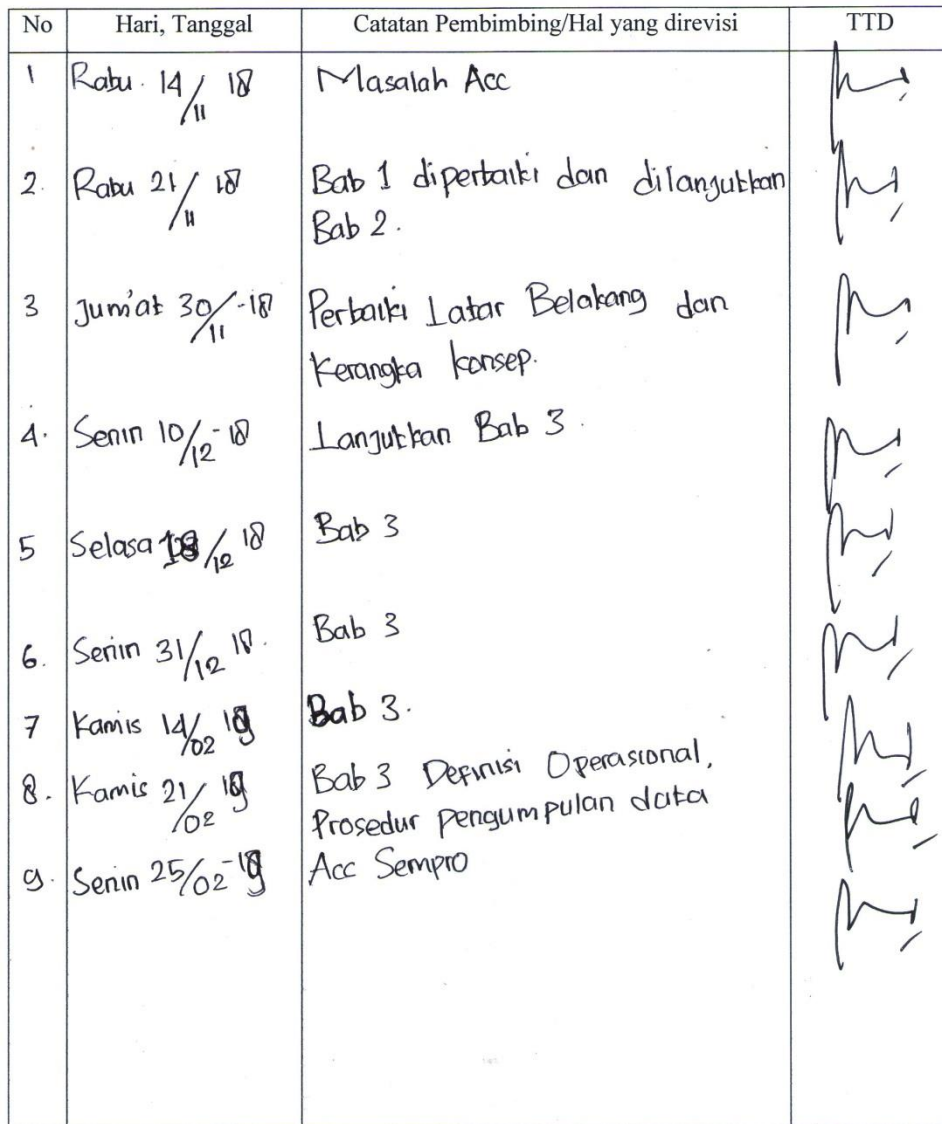 No Hari, Tanggal Catatan Pembimbing/Hal yang direvisi TTD
1 Rabu. 14/11 18 Masalah Acc
2. Rabu 21/11 18 Bab 1 diperbaiki dan dilanjutkan
Bab 2.
3 Jum'at 30/11-18 Perbaiki Latar Belakang dan
Kerangka konsep.
4. Senin 10/12-18 Lanjutkan Bab 3.
5 Selasa 18/12 18 Bab 3
6. Senin 31/12 18. Bab 3
7 Kamis 14/02 19 Bab 3.
8. Kamis 21/02 19 Bab 3 Definisi Operasional,
Prosedur pengumpulan data
9. Senin 25/02-19 Acc Sempro